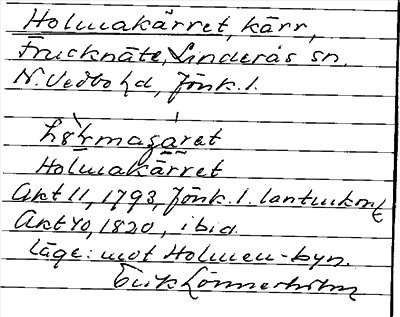 Holmakärret, kärr,
Frucknäte, Linderås sn.
N. Vedbo hd, Jönk. l.
Holmakärret
Akt 11, 1793, Jönk. l. lantmkont
Akt 40, 1820, ibid.
läge: mot Holmen-byn.
Erik Lönnerholm